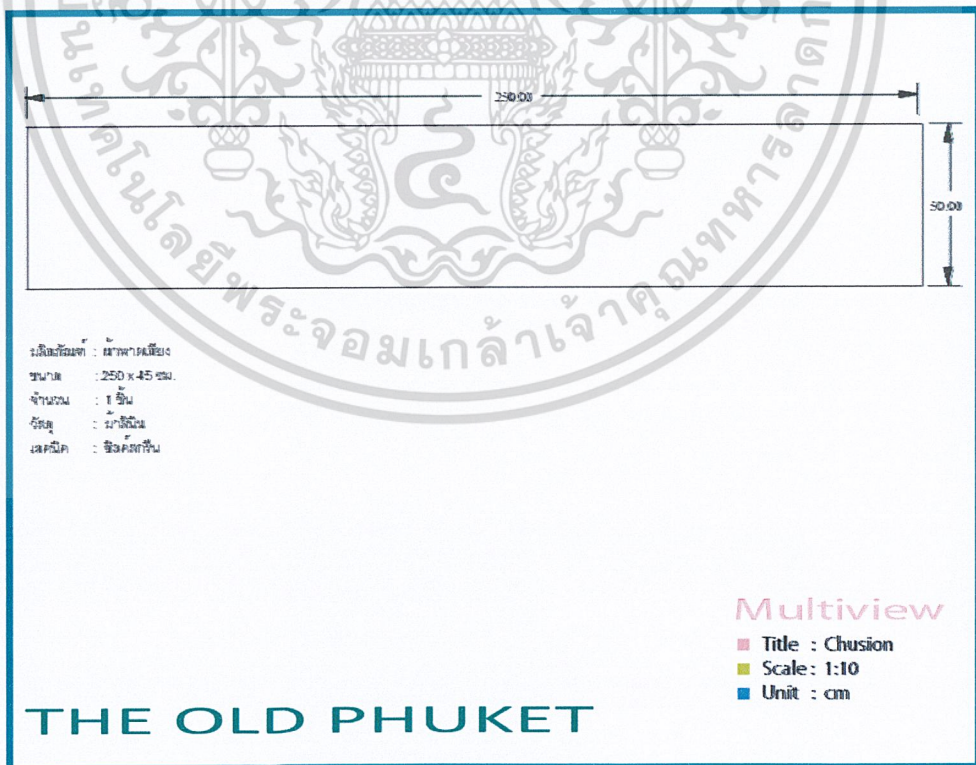 250.00
50.00
ผลิตภัณฑ์ : ผ้าพาดเตียง
ขนาด : 250 x 45 ซม.
จำนวน : 1 ชิ้น
วัสดุ : ผ้าลินิน
เทคนิค : ซิลค์สกรีน
Multiview
Title : Chusion
Scale : 1:10
Unit : cm
THE OLD PHUKET